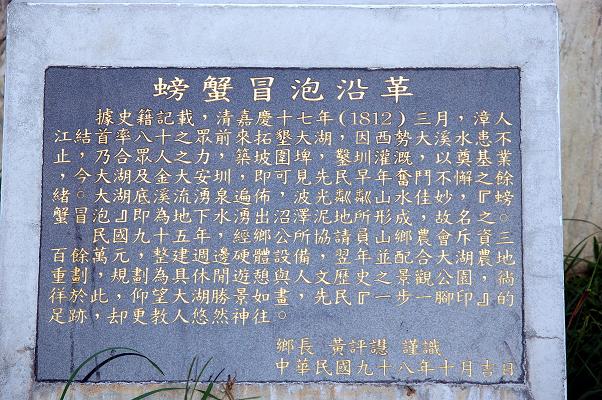 螃蟹冒泡沿革
據史籍記載，清嘉慶十七年(1812)三月，漳人
江結首率八十之眾前來拓墾大湖，因西勢大溪水患不
止，乃合眾人之力，築坡圍埤，鑿圳灌溉，以奠基業
。今大湖及金大安圳，即可見先民早年奮鬥不懈之餘
緒。大湖底溪流湧泉遍佈，波光粼粼山水佳妙，『螃
蟹冒泡』即為地下水湧出沼澤泥地所形成，故名之。
民國九十五年，經鄉公所協請員山鄉農會斥資三
百餘萬元，整建週邊硬體設備，翌年並配合大湖農地
重劃，規劃為具休閒遊憩與人文歷史之景觀公園，徜
徉於此，仰望大湖勝景如畫，先民『一步一腳印』的
足跡，卻更教人悠然神往。
鄉長 黃評 謹識
中華民國九十八年十月吉日